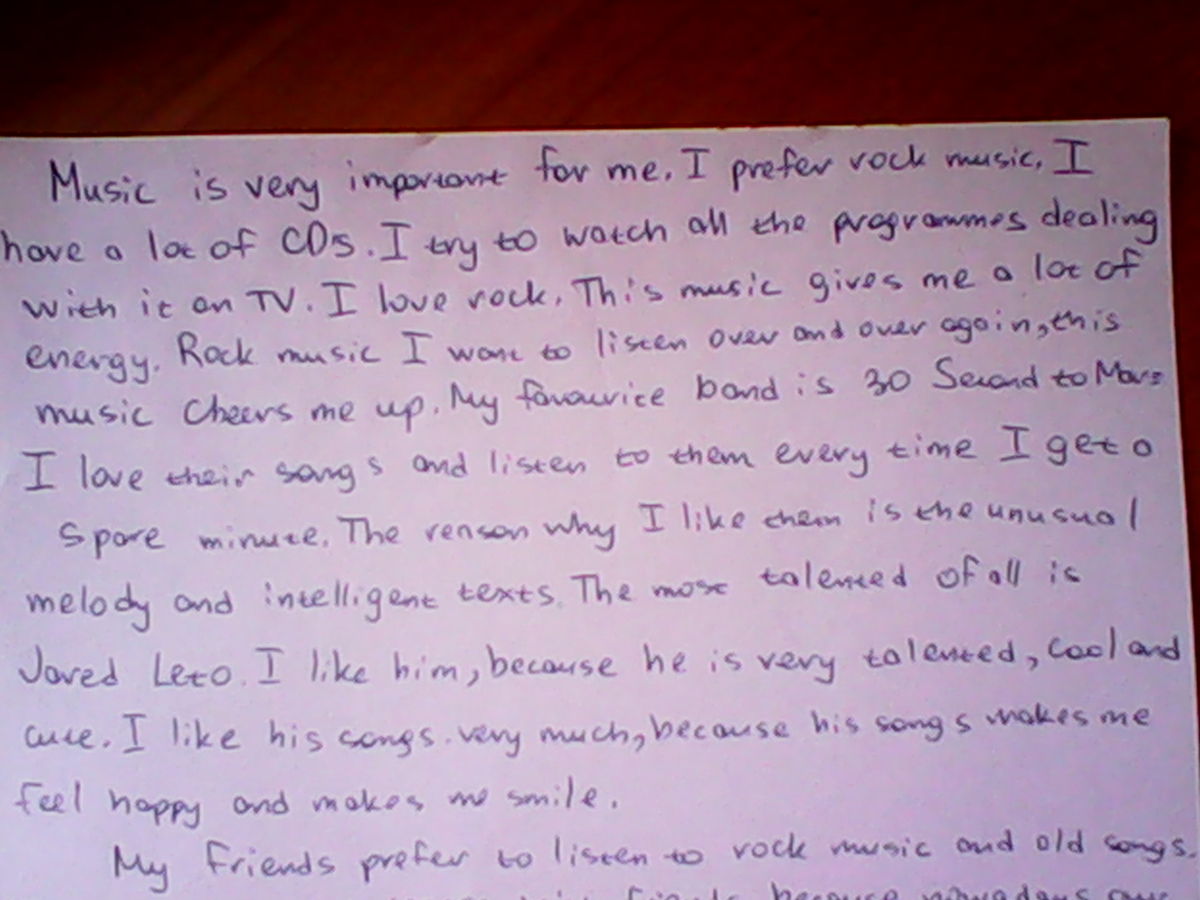 Music is very important for me. I prefer rock music. I
have a lot of CDs. I try to watch all the programmes dealing
with it on TV. I love rock. This music gives me a lot of
energy. Rock music I want to listen over and over again, this
music cheers me up. My favourite band is 30 Second to Mars
I love their songs and listen to them every time I get a
spare minute. The renson why I like them is the unusual
melody and intelligent texts. The most talented of all is
Jared Leto. I like him, because he is very talented, cool and
cute. I like his songs very much, because his songs makes me
feel happy and makes me smile.
My friends prefer to listen to rock music and old songs.
friends because nowadays